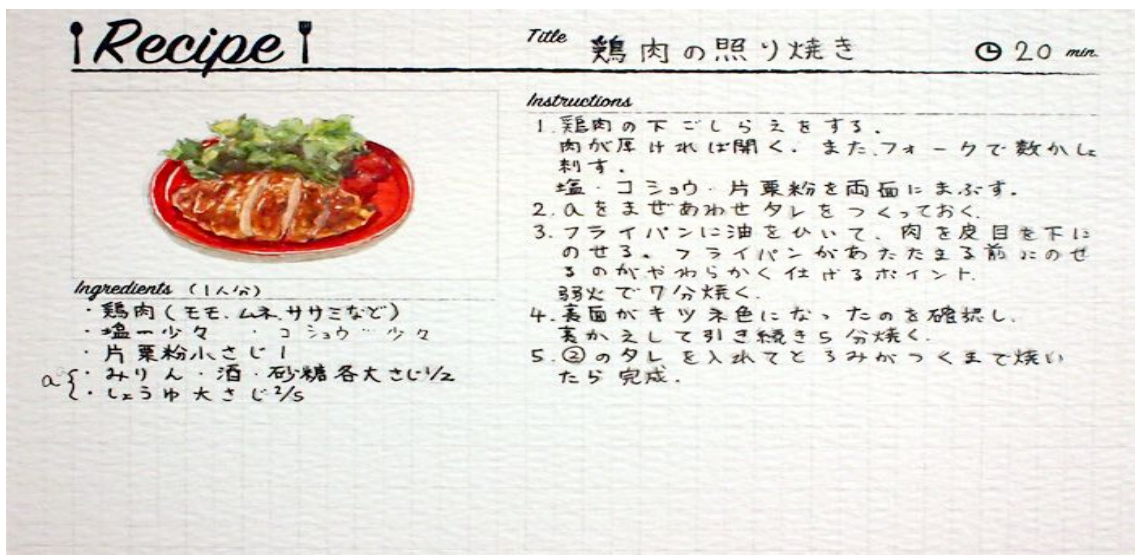 Recipe
Title 鶏肉の照り焼き 20 min.
Ingredients (1人分)
・鶏肉(モモ、ムネ、ササミなど)
・塩…少々 ・コショウ…少々
・片栗粉小さじ1
a ・みりん・酒・砂糖各大さじ1/2
・しょうゆ大さじ2/5
Instructions
1. 鶏肉の下ごしらえをする.
肉が厚ければ開く. また、フォークで数かしょ
刺す.
塩・コショウ・片栗粉を両面にまぶす.
2. aをまぜあわせタレをつくっておく.
3. フライパンに油をひいて、肉を皮目を下に
のせる。フライパンがあたたまる前にのせ
るのがやわらかく仕げるポイント.
弱火で7分焼く.
4. 表面がキツネ色になったのを確認し、
裏かえして引き続き5分焼く.
5. ②のタレを入れてとろみがつくまで焼い
たら完成.